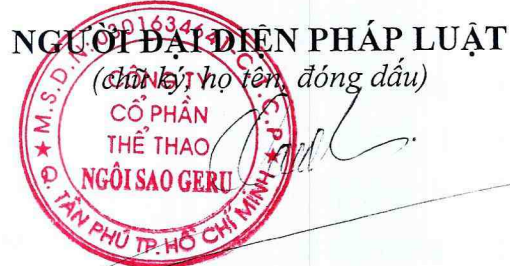 NGƯỜI ĐẠI DIỆN PHÁP LUẬT
(chữ ký, họ tên, đóng dấu)
CÔNG TY
CỔ PHẦN
THỂ THAO
NGÔI SAO GERU
Q. TÂN PHÚ TP. HỒ CHÍ MINH